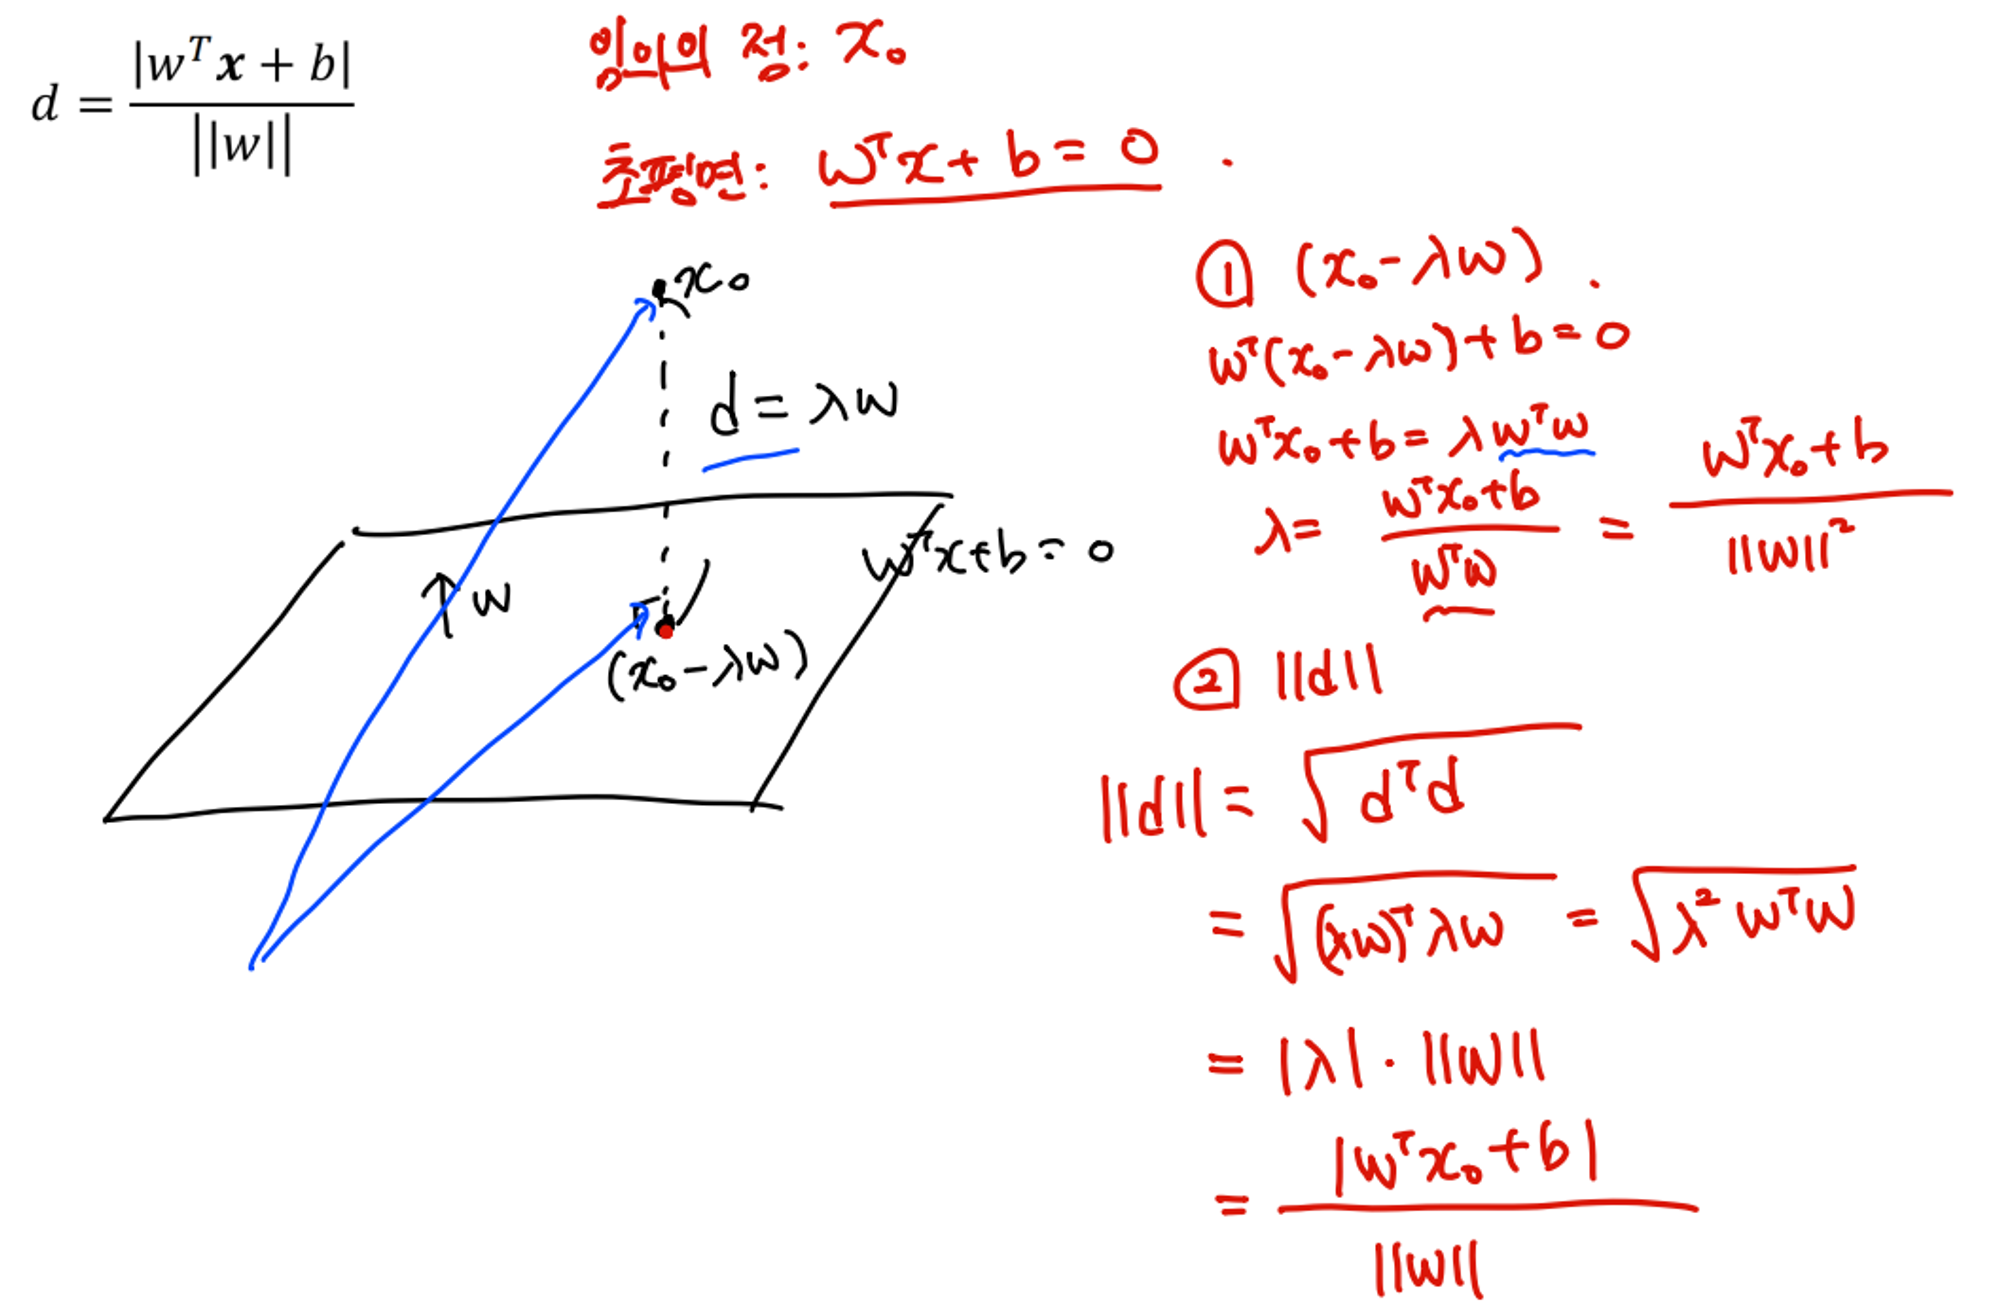 d = |wᵀx + b| / ||w||
임의의 점: x₀
초평면: wᵀx + b = 0 .
x₀
d = λw
wᵀx+b = 0
w
(x₀-λw)
① (x₀-λw) .
wᵀ(x₀-λw)+b=0
wᵀx₀+b = λwᵀw
λ = wᵀx₀+b / wᵀw = wᵀx₀+b / ||w||²
② ||d||
||d|| = √dᵀd
= √(λw)ᵀλw = √λ²wᵀw
= |λ|·||w||
= |wᵀx₀+b| / ||w||